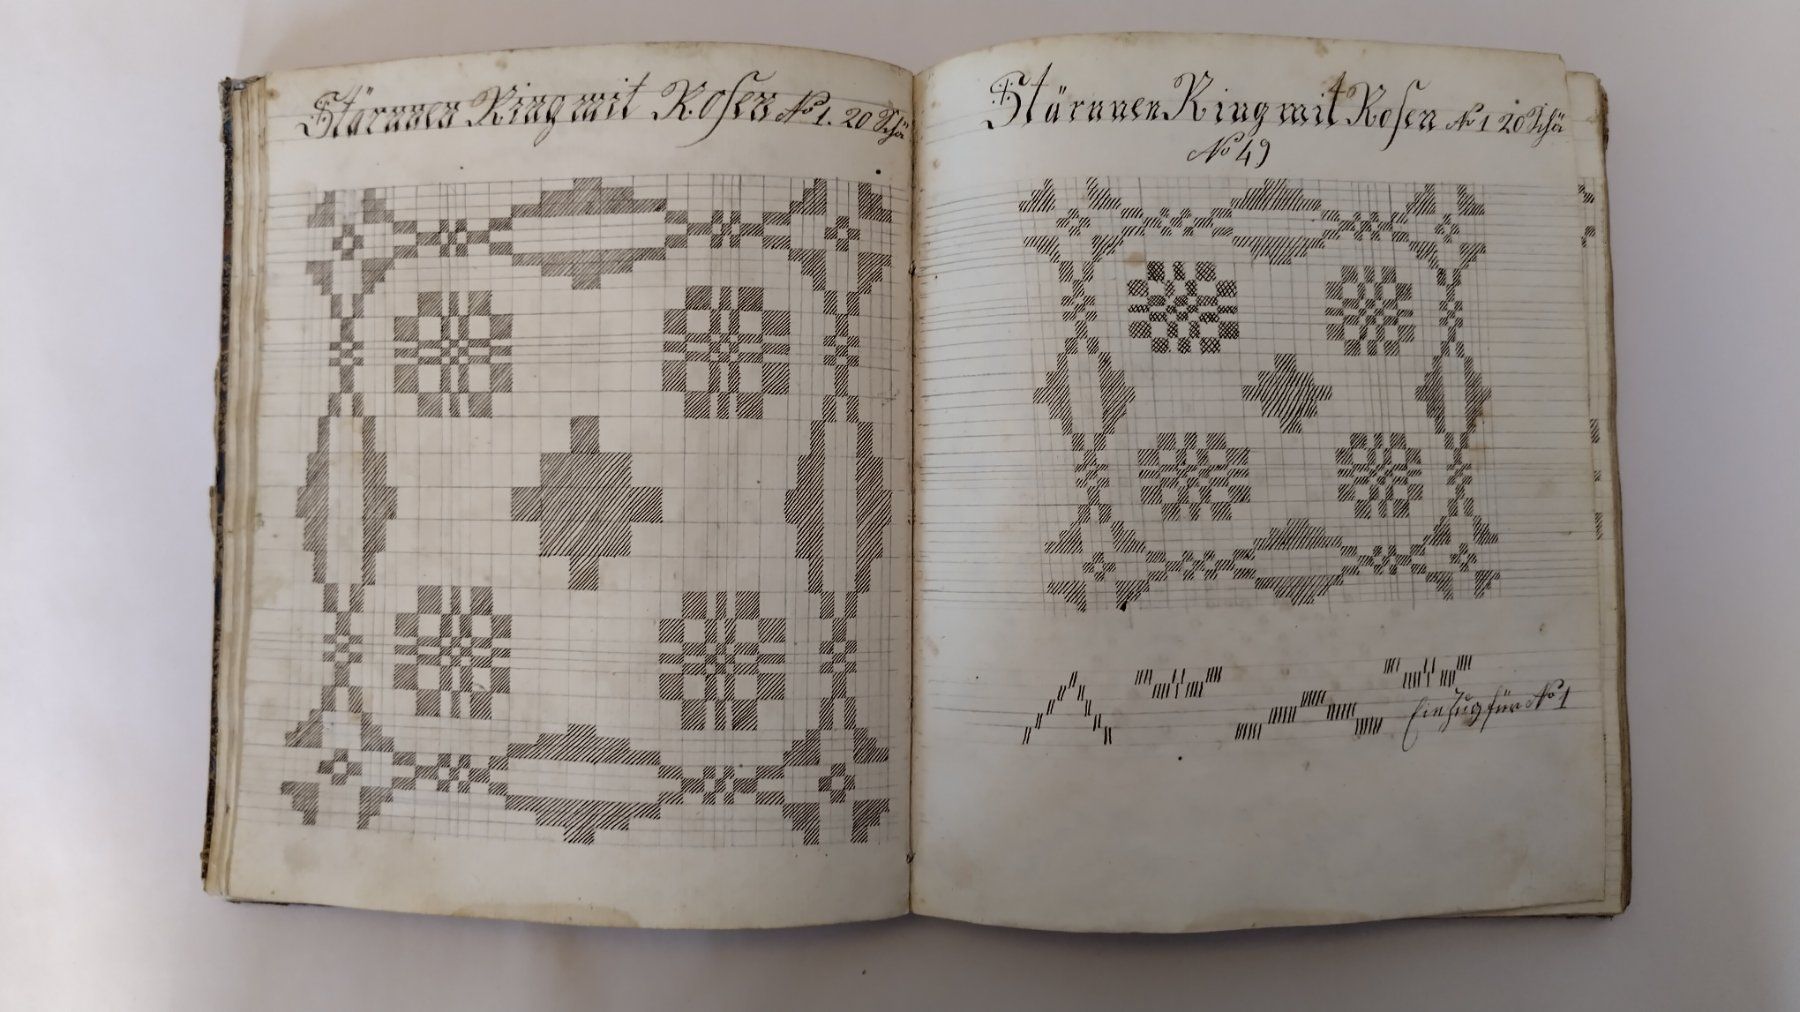 Stärnnen Ring mit Rosen No 1. 20 Schä
Stärnnen Ring mit Rosen No 1 20 Schä
No 49
Einzug für No 1